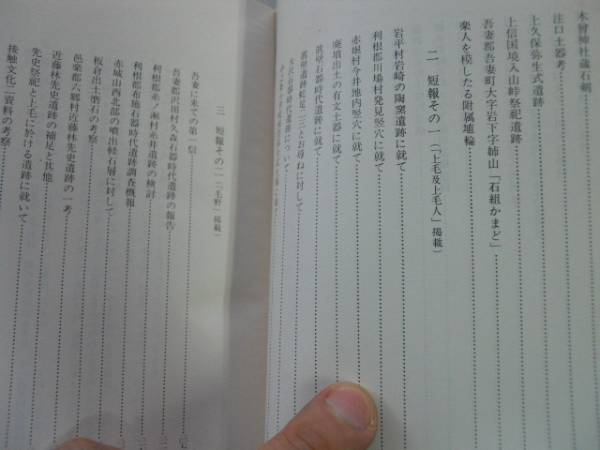 木曾神社蔵石剣
注口土器考
上久保弥生式遺跡
上信国境入山峠祭祀遺跡
吾妻郡吾妻町大字岩下字姉山「石組かまど」
楽人を模したる附属埴輪
二 短報その一（「上毛及上毛人」掲載）
岩平村岩崎の陶窯遺跡に就て
利根郡川場村発見竪穴に就て
赤堀村今井地内竪穴に就て
廃墳出土の有文土器に就て
敷石器時代遺跡に就て
遺跡蛇足（三）とお尋ねに対して
三 短報その二（「毛野」掲載）
吾妻に来ての第一信
吾妻郡沢田村久森石器時代遺跡の報告
利根郡糸ノ瀬村糸井遺跡の検討
利根郡布施石器時代遺跡調査概報
赤城山西北部の噴出軽石層に対して
板倉出土磨石の考察
邑楽郡六郷村近藤林先史遺跡の一考
近藤林先史遺跡の補足と其他
先史祭祀と上毛に於ける遺跡に就いて
接触文化二資料の考察